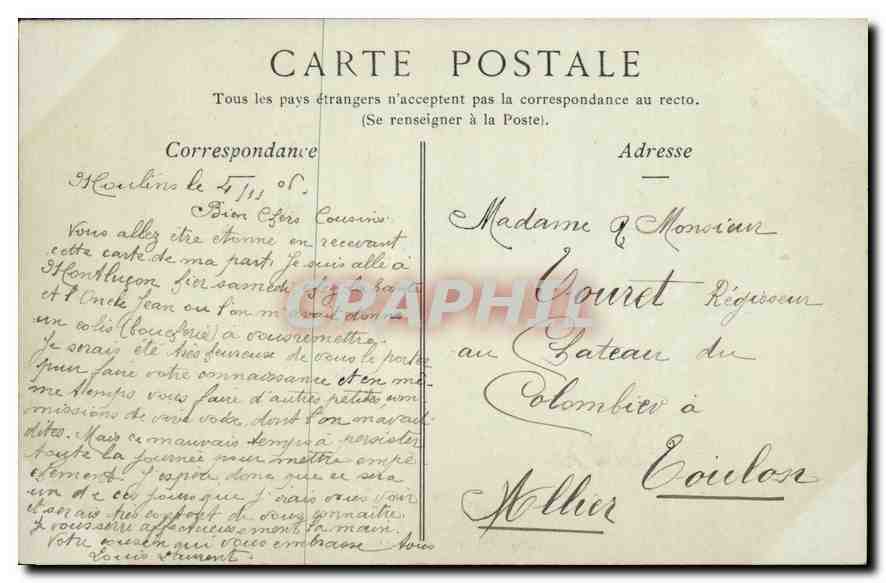 CARTE POSTALE
Tous les pays étrangers n'acceptent pas la correspondance au recto.
(Se renseigner à la Poste).
Correspondance
Moulins le 4/11 06.
Bien Chers Cousins
Vous allez être étonné en recevant
cette carte de ma part. Je suis allé à
Montluçon hier samedi
et l'Oncle Jean ou l'on m'avait donné
un colis (boucherie) à vous remettre.
Je serais été très heureuse de vous le porter
pour faire votre connaissance et en mê-
me temps vous faire d'autres petites com
missions de vive voix, dont l'on m'avait
dites. Mais ce mauvais temps à persister
toute la journée pour mettre empê
chement. J'espère donc que ce sera
un de ces jours que j'irais vous voir
et serais très content de vous connaître.
Je vous serre affectueusement la main.
Votre cousin qui vous embrasse tous
Louis Laurent.
Adresse
Madame & Monsieur
Touret Régisseur
au Château du
Colombier à
Toulon
Allier
CPAPHIL